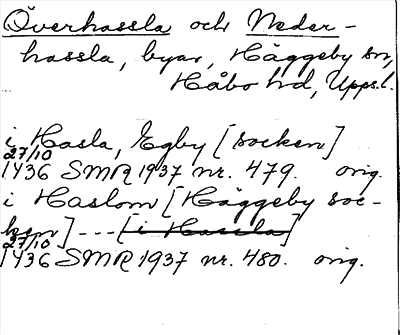 Överhassla och Neder-
hassla, byar, Häggeby sn,
Håbo hd, Uppsl.
i Hasla, Egby [socken]
27/10
1436 SMR 1937 nr. 479. orig.
i Haslom [Häggeby soc-
ken] --- [i Hassla]
27/10
1436 SMR 1937 nr. 480. orig.